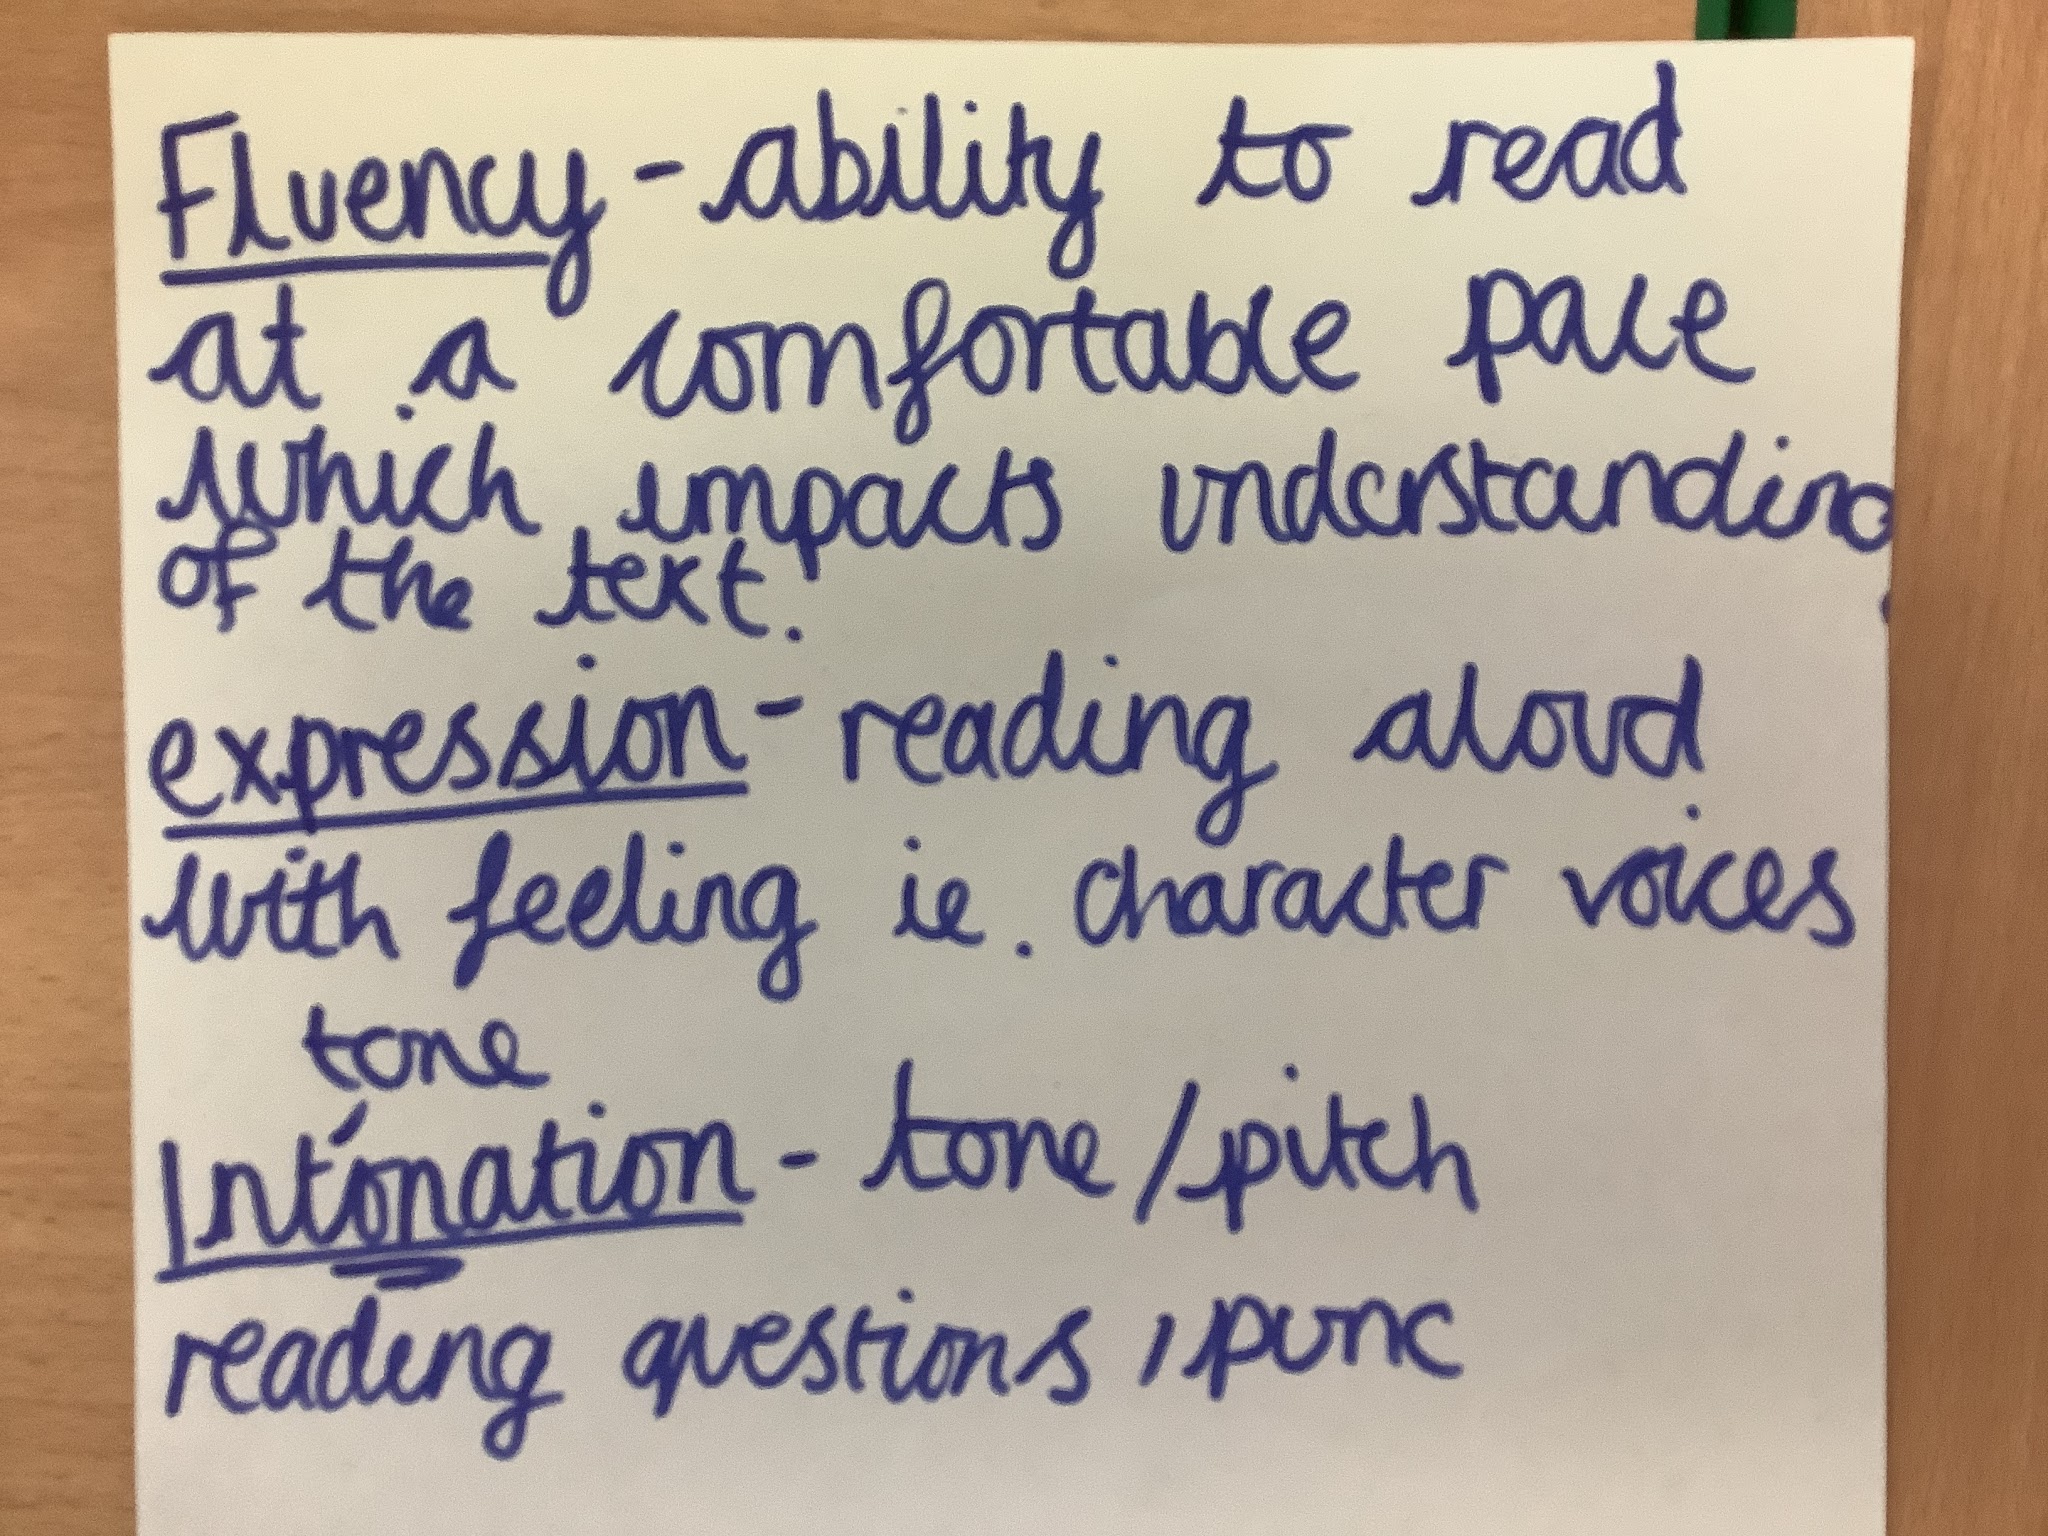 Fluency - ability to read
at a comfortable pace
which impacts understanding
of the text.
expression - reading aloud
with feeling ie. character voices
tone
Intonation - tone / pitch
reading questions, punc